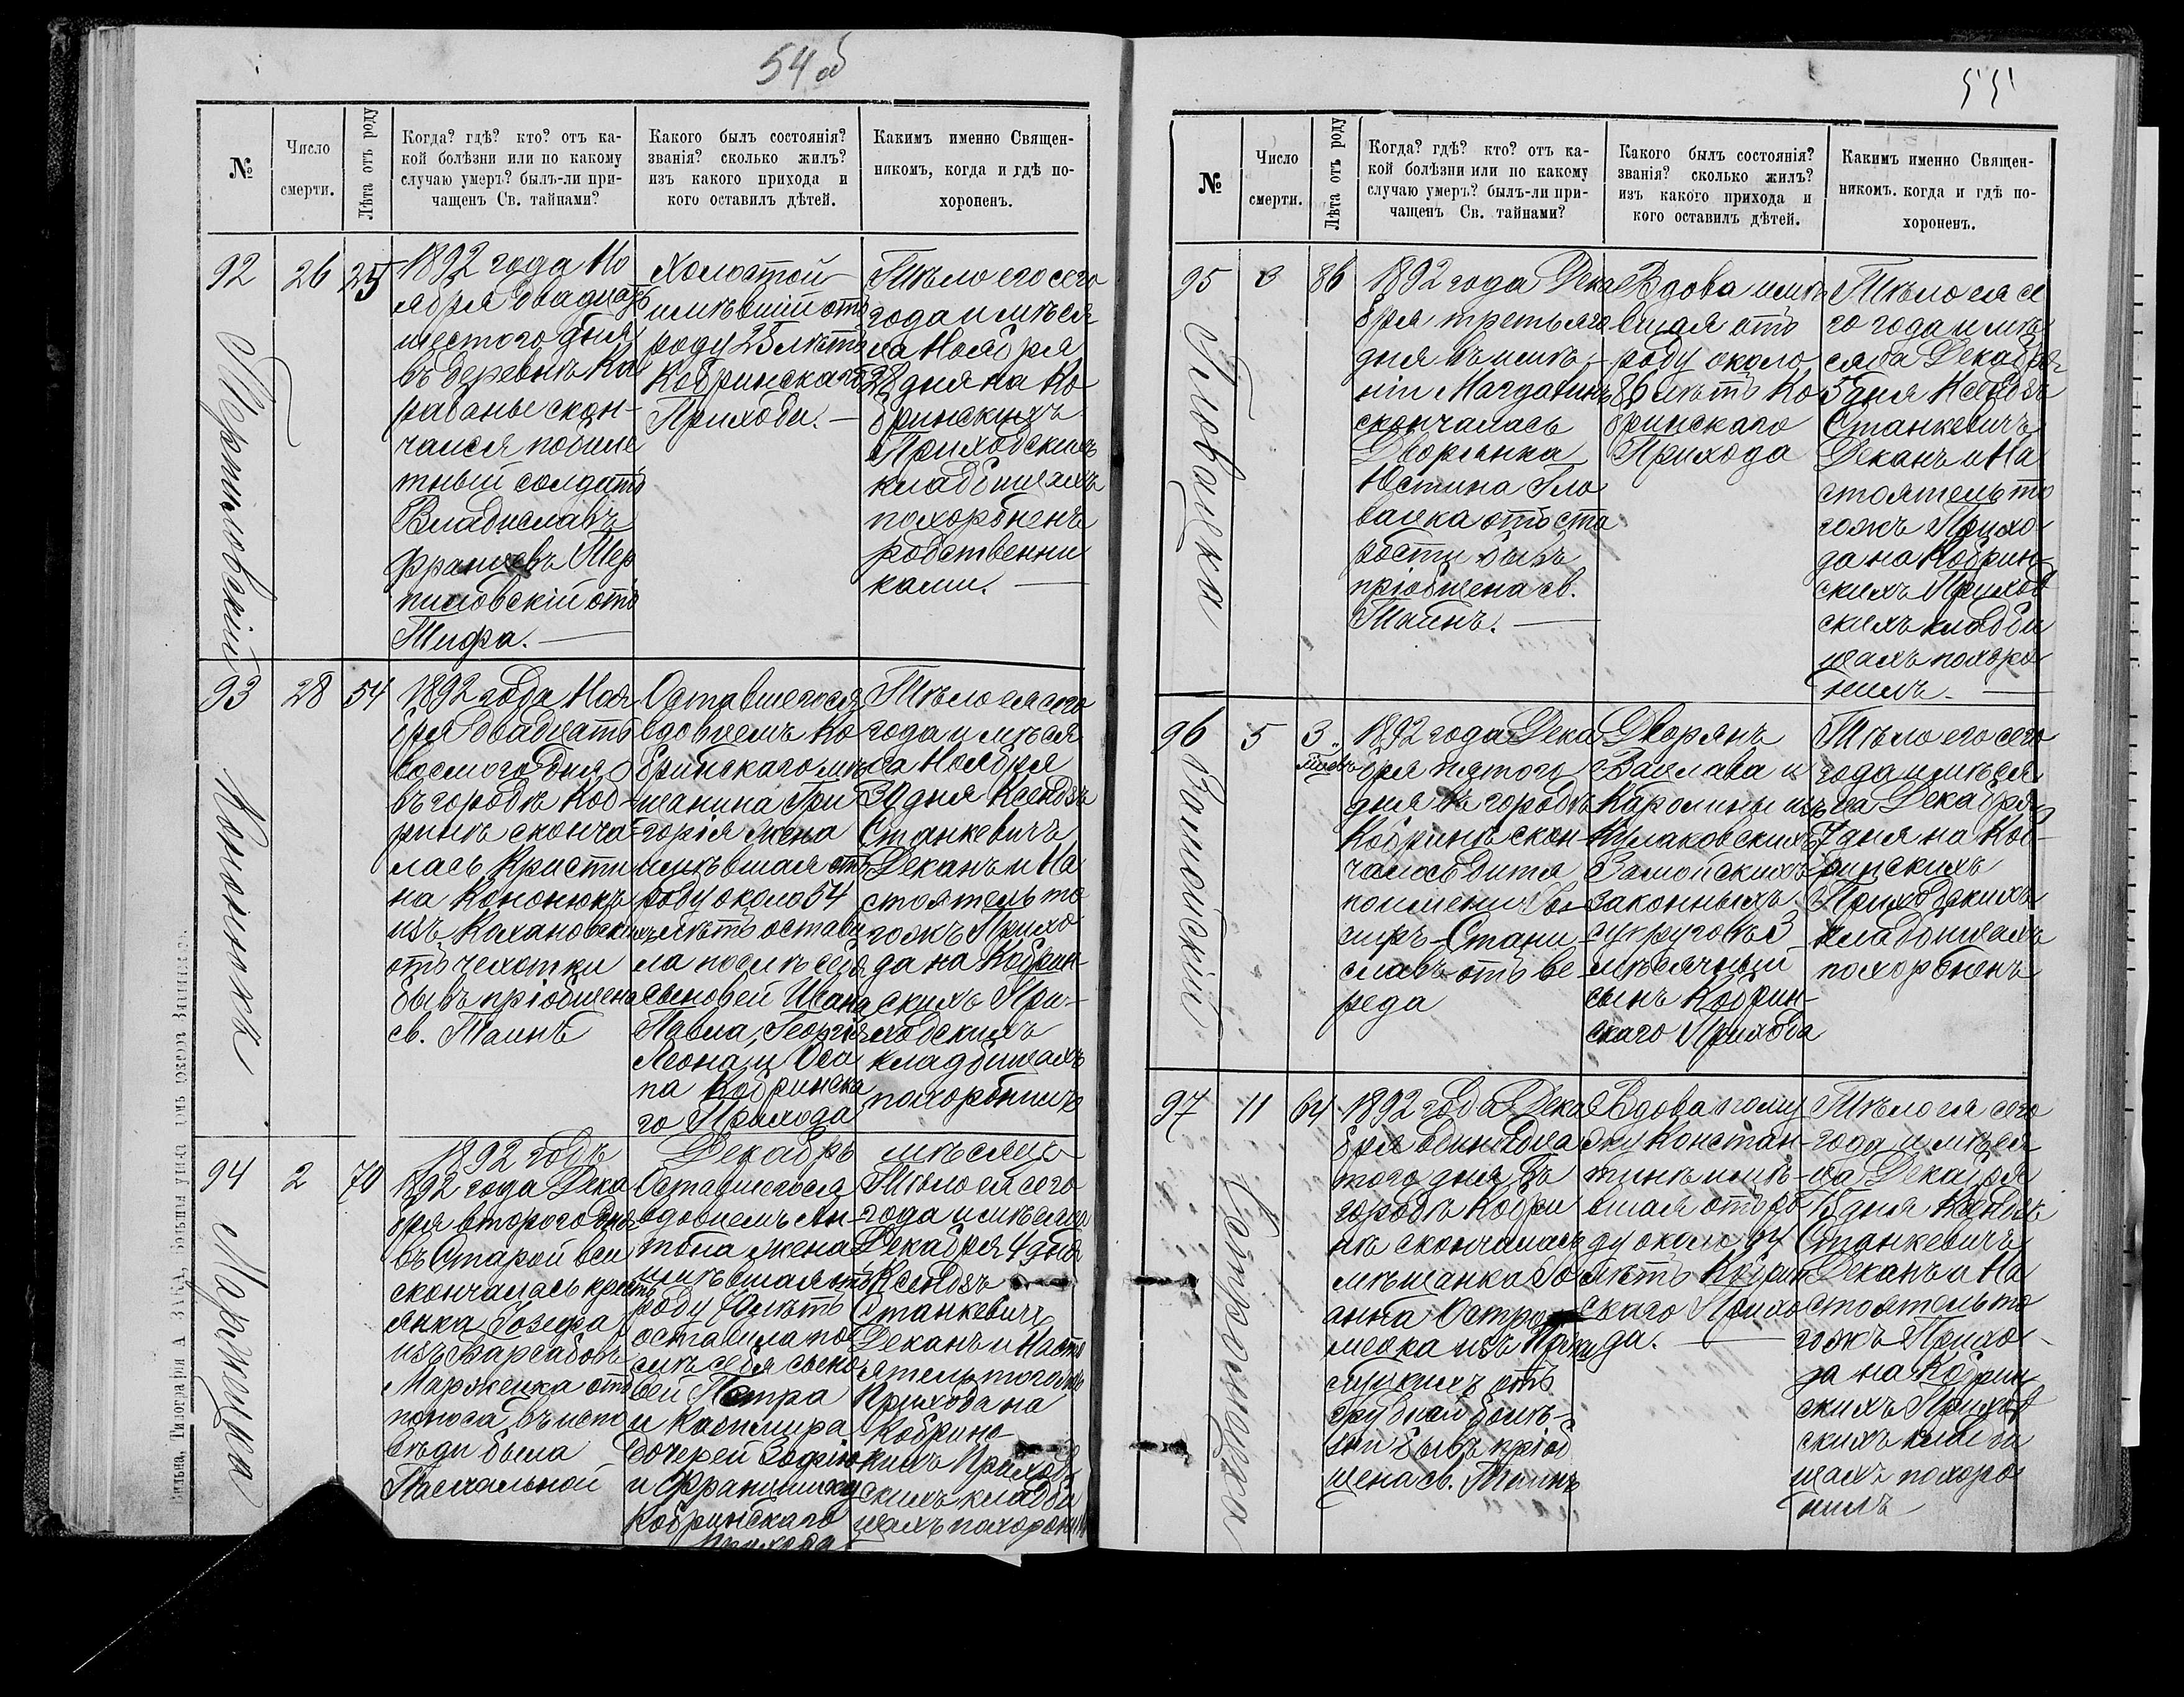 54 об
№
Число
смерти.
Лѣта отъ роду
Когда? гдѣ? кто? отъ ка-
кой болѣзни или по какому
случаю умеръ? былъ-ли при-
чащенъ Св. тайнами?
Какого былъ состоянія?
званія? сколько жилъ?
изъ какого прихода и
кого оставилъ дѣтей.
Каким именно Священ-
никомъ, когда и гдѣ по-
хороненъ.
92
26
25
1892 года Но
ября двадцать
шестого дня
въ деревнѣ Ка
скон-
чался
солдатъ
Владиславъ
Францевъ Тер
пиловскій отъ
Тифа.
Холостой
имѣвшій отъ
роду 25 лѣтъ
Кобринскаго
Прихода.
Тѣло его сего
года и мѣся
ца Ноября
28 дня на Ко
бринскихъ
Приходскихъ
кладбищахъ
похороненъ
родственни
ками.
Терпиловскій
93
28
54
1892 года Ноя
бря двадцать
восмого дня
въ городѣ Коб-
ринѣ сконча
лась Кристи
на Кононюкъ
изъ Кахановскихъ
отъ чехотки
бывъ пріобщена
св. Таинъ
Оставшегося
вдовцемъ Ко
бринскаго мѣ
щанина Гри
горія жена
имѣвшая отъ
роду около 54
лѣтъ остави
ла послѣ себя
сыновей Ивана
Павла, Георгія
Леона и Оси
па Кобринска
го Прихода
Тѣло ея сего
года и мѣся
ца Ноября
30 дня Ксендзъ
Станкевичъ
Деканъ и На
стоятель то
гожъ Прихо
да на Кобрин-
скихъ При-
ходскихъ
кладбищахъ
похоронилъ
Кононюкъ
1892 годъ Декабрь мѣсяцъ
94
2
70
1892 года Дека
бря второго дня
въ Старой вси
скончалась крестъ
янка Іозефа
изъ Барсабовъ
Марженка отъ
поноса, въ испо
вѣди была
Пасхальной
Оставшегося
вдовцемъ Ан-
тона жена
имѣвшая отъ
роду 70 лѣтъ
оставила по
слѣ себя сыно
вей Петра
и Казимира
дочерей Зофію
и Францишку
Кобринскаго
Прихода
Тѣло ея сего
года и мѣсяца
Декабря 4 дня
Ксендзъ
Станкевичъ
Деканъ и Насто
ятель тогожъ
Прихода на
Кобринс
кихъ Приход
скихъ кладби
щахъ похоронил
55
№
Число
смерти.
Лѣта отъ роду
Когда? гдѣ? кто? отъ ка-
кой болѣзни или по какому
случаю умеръ? былъ-ли при-
чащенъ Св. тайнами?
Какого былъ состоянія?
званія? сколько жилъ?
изъ какого прихода и
кого оставилъ дѣтей.
Каким именно Священ-
никомъ. когда и гдѣ по-
хороненъ.
95
3
86
1892 года Дека
бря третьяго
дня въ имѣ-
ніи Магдалинъ
скончалась
Дворянка
Юстина Гло
вацка отъ ста
рости бывъ
пріобщена св.
Таинъ.
Вдова имѣ
вшая отъ
роду около
86 лѣтъ Ко
бринскаго
Прихода
Тѣло ея се
го года и мѣ
сяца Декабря
5 дня Ксендзъ
Станкевичъ
Деканъ и На
стоятель то
гожъ Прихо
да на Кобрин
скихъ Приход
скихъ кладби
щахъ похоро
нилъ.
Гловацка
96
5
3
1892 года Дека
бря пятого
дня въ городѣ
Кобринѣ скон-
чалось дитя
по имени
Стани
славъ отъ ве
реда
Дворянъ
Вацлава и
Каролины изъ
Кулаковскихъ
Замойскихъ
законныхъ
супруговъ 3
мѣсячный
сынъ Кобрин-
скаго Прихода
Тѣло его сего
года и мѣся
ца Декабря
7 дня на Коб-
ринскихъ
Приходскихъ
кладбищахъ
похороненъ
Замойскій
97
11
64
1892 года Дека
бря одинадца
того дня въ
городѣ Кобри
нѣ скончалась
мѣщанка Іо
анна Остро
мецка изъ
отъ
грудной болѣ-
зни бывъ пріоб
щена св. Таинъ
Вдова по му
жу Констан-
тинѣ имѣ-
вшая отъ ро
ду около 64
лѣтъ Кобрин
скаго Прихо
да.
Тѣло ея сего
года и мѣся
ца Декабря
13 дня Ксендзъ
Станкевичъ
Деканъ и На
стоятель то
гожъ Прихо
да на Кобрин
скихъ Приход
скихъ кладби
щахъ похоро
нилъ